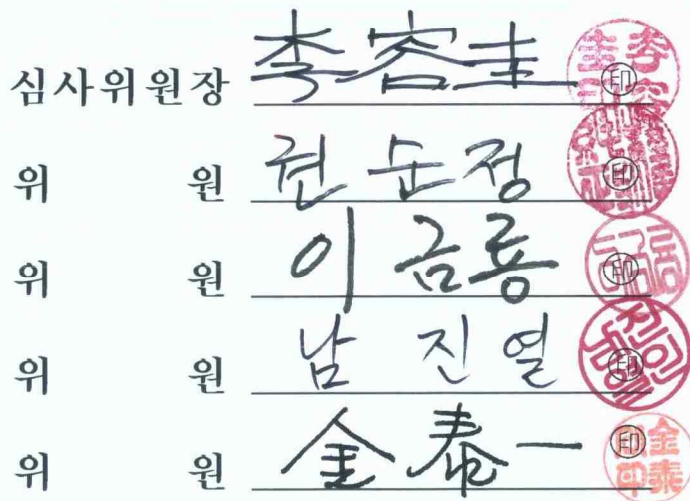 심사위원장 李容圭 印
위 원 권순정 印
위 원 이금룡 印
위 원 남진열 印
위 원 金泰一 印